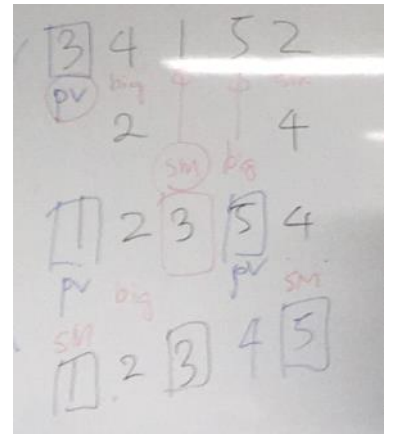 3 4 1 5 2
pv big sm
2 4
sm big
1 2 3 5 4
pv big pv sm
sm
1 2 3 4 5